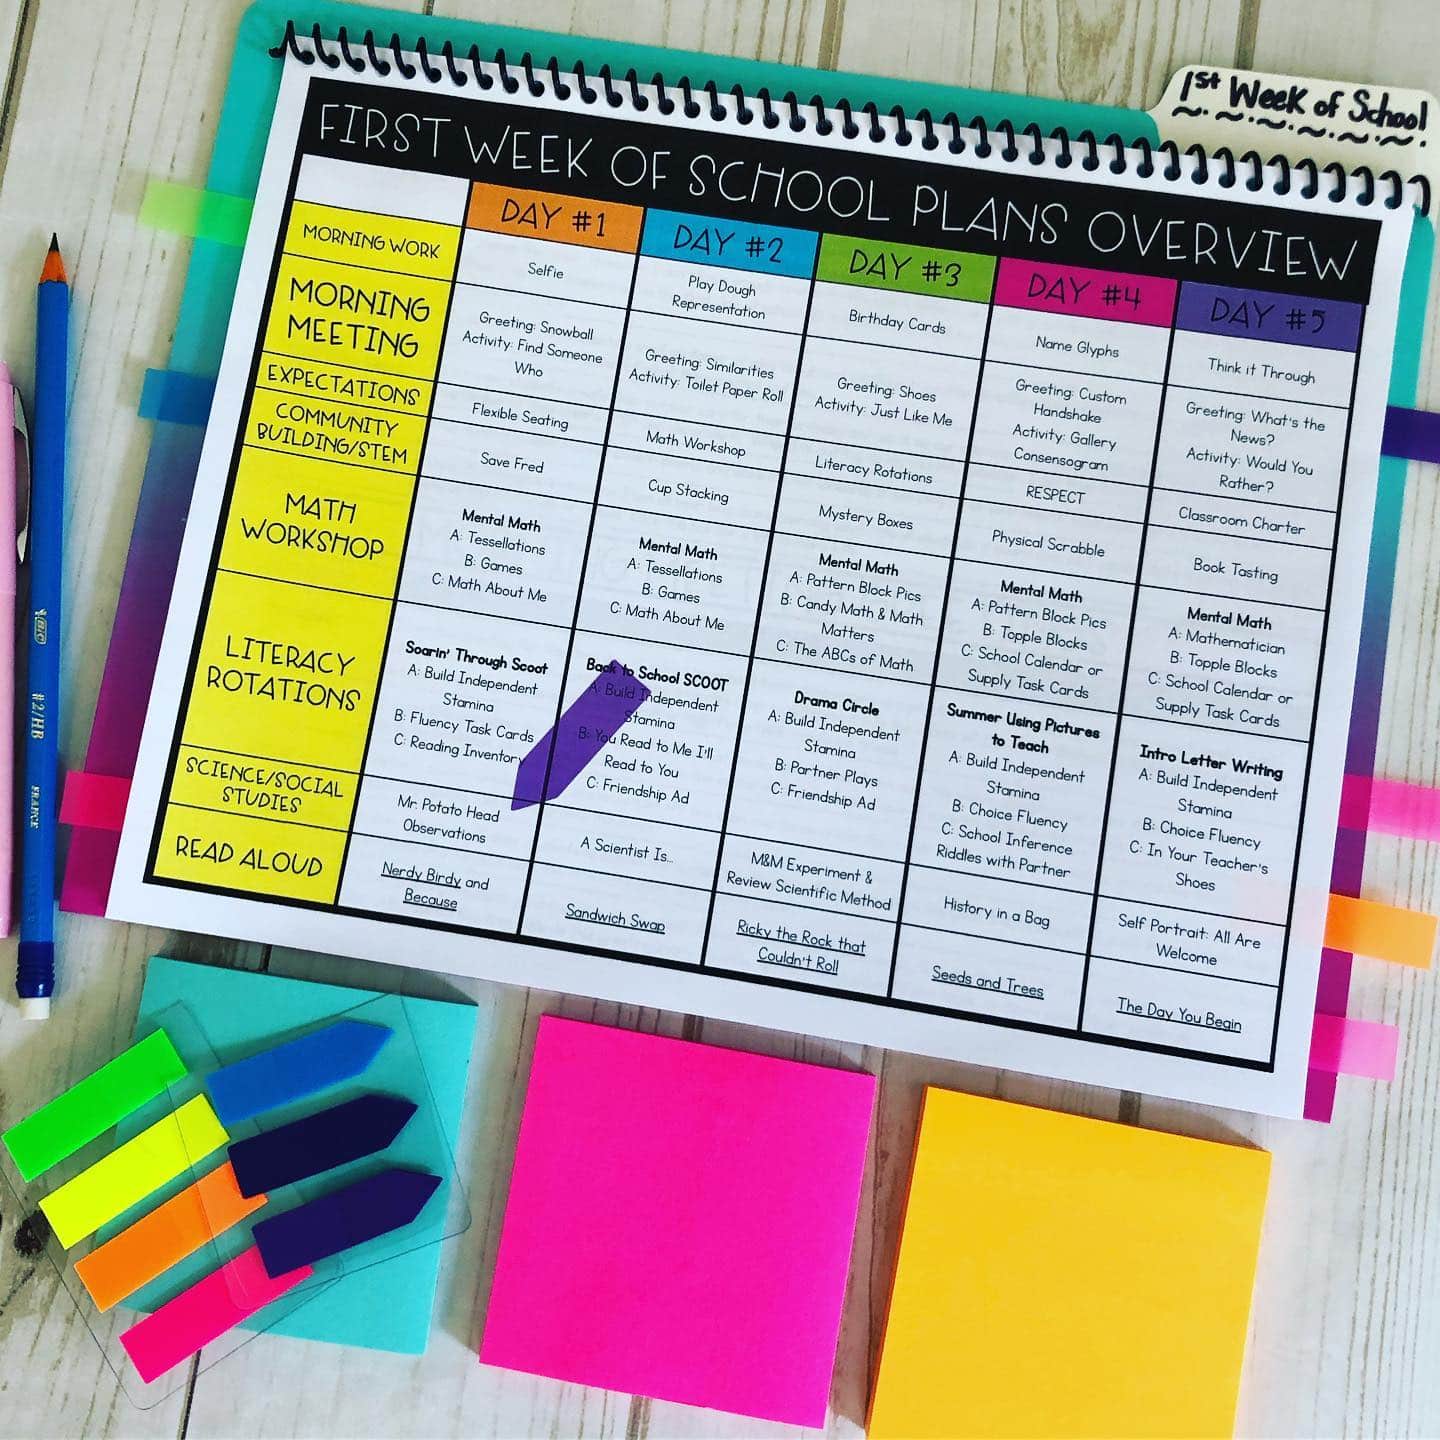 1st Week of School
FIRST WEEK OF SCHOOL PLANS OVERVIEW
DAY #1
DAY #2
DAY #3
DAY #4
DAY #5
MORNING WORK
Selfie
Play Dough
Representation
Birthday Cards
Name Glyphs
Think it Through
MORNING
MEETING
Greeting: Snowball
Activity: Find Someone
Who
Greeting: Similarities
Activity: Toilet Paper Roll
Greeting: Shoes
Activity: Just Like Me
Greeting: Custom
Handshake
Activity: Gallery
Consensogram
Greeting: What's the
News?
Activity: Would You
Rather?
EXPECTATIONS
Flexible Seating
Math Workshop
Literacy Rotations
RESPECT
Classroom Charter
COMMUNITY
BUILDING/STEM
Save Fred
Cup Stacking
Mystery Boxes
Physical Scrabble
Book Tasting
MATH
WORKSHOP
Mental Math
A: Tessellations
B: Games
C: Math About Me
Mental Math
A: Tessellations
B: Games
C: Math About Me
Mental Math
A: Pattern Block Pics
B: Candy Math & Math
Matters
C: The ABCs of Math
Mental Math
A: Pattern Block Pics
B: Topple Blocks
C: School Calendar or
Supply Task Cards
Mental Math
A: Mathematician
B: Topple Blocks
C: School Calendar or
Supply Task Cards
LITERACY
ROTATIONS
Soarin' Through Scoot
A: Build Independent
Stamina
B: Fluency Task Cards
C: Reading Inventory
Back to School SCOOT
A: Build Independent
Stamina
B: You Read to Me I'll
Read to You
C: Friendship Ad
Drama Circle
A: Build Independent
Stamina
B: Partner Plays
C: Friendship Ad
Summer Using Pictures
to Teach
A: Build Independent
Stamina
B: Choice Fluency
C: School Inference
Riddles with Partner
Intro Letter Writing
A: Build Independent
Stamina
B: Choice Fluency
C: In Your Teacher's
Shoes
SCIENCE/SOCIAL
STUDIES
Mr. Potato Head
Observations
A Scientist Is...
M&M Experiment &
Review Scientific Method
History in a Bag
Self Portrait: All Are
Welcome
READ ALOUD
Nerdy Birdy and
Because
Sandwich Swap
Ricky the Rock that
Couldn't Roll
Seeds and Trees
The Day You Begin
BIC
#2/HB
FRANCE